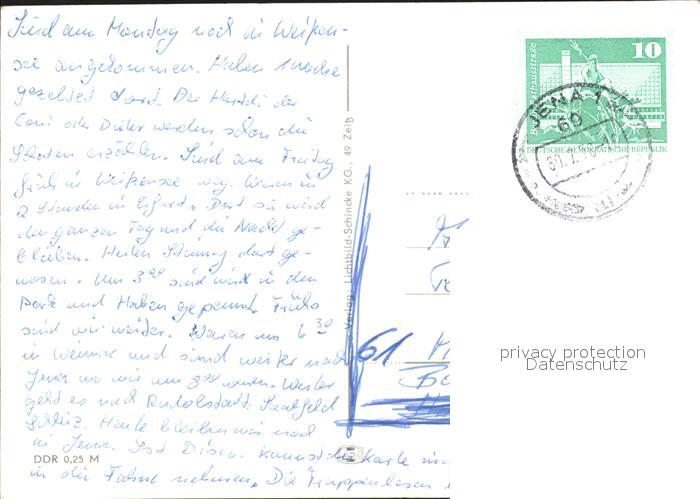 Sind am Montag noch in Weißen-
see angekommen. Haben 1 Woche
gezeltet dort. Der Hardi der
Coni oder Dieter werden schon die
erzählen. Sind am Freitag
früh in Weißensee weg. Waren in
2 Stunden in Erfurt. Dort sind wir
den ganzen Tag und die Nacht ge-
blieben. Stimmung dort ge-
wesen. Um 3 00 sind wir in den
Park und haben gepennt. Früh
sind wir weiter. Waren um 6 30
in Weimar und sind weiter nach
Jena wo wir um 8 00 waren. Weiter
geht es nach Rudolstadt, Saalfeld
Heute bleiben wir noch
in Jena. Ist Disco. Kannst die Karte
in die nehmen. Die
DDR 0,25 M
Verlag Lichtbild-Schincke KG., 49 Zeitz
10
DEUTSCHE DEMOKRATISCHE REPUBLIK
JENA 1
69
30.7.
61
privacy protection
Datenschutz